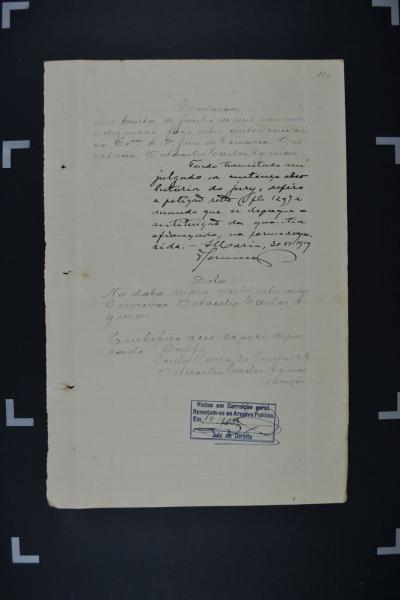 Conclusão
de Junho de mil novecentos
e dezenove faço estes autos conclusos
ao Exmo Sr. Dr. Juiz da Comarca. O es-
crivão, Octacilio Carlos Aguiar
Tendo transitado em
julgado a sentença abso-
lutoria do jury, defiro
a petição retro (fls. 129) e
mando que se depreque a
restituição da quantia
afiançada, na forma reque-
rida. - S. Maria, 30-VI-919
Data
Na data supra recebi estes autos
O escrivão, Octacilio Carlos A-
guiar
Certifico que expedi depre-
cada. Dou fé.
Santa Maria, 30 Junho 1919
Octacilio Carlos Aguiar
escrivão
Vistos em Correição geral.
Remetam-se ao Arquivo Público.
Em
Juiz de Direito